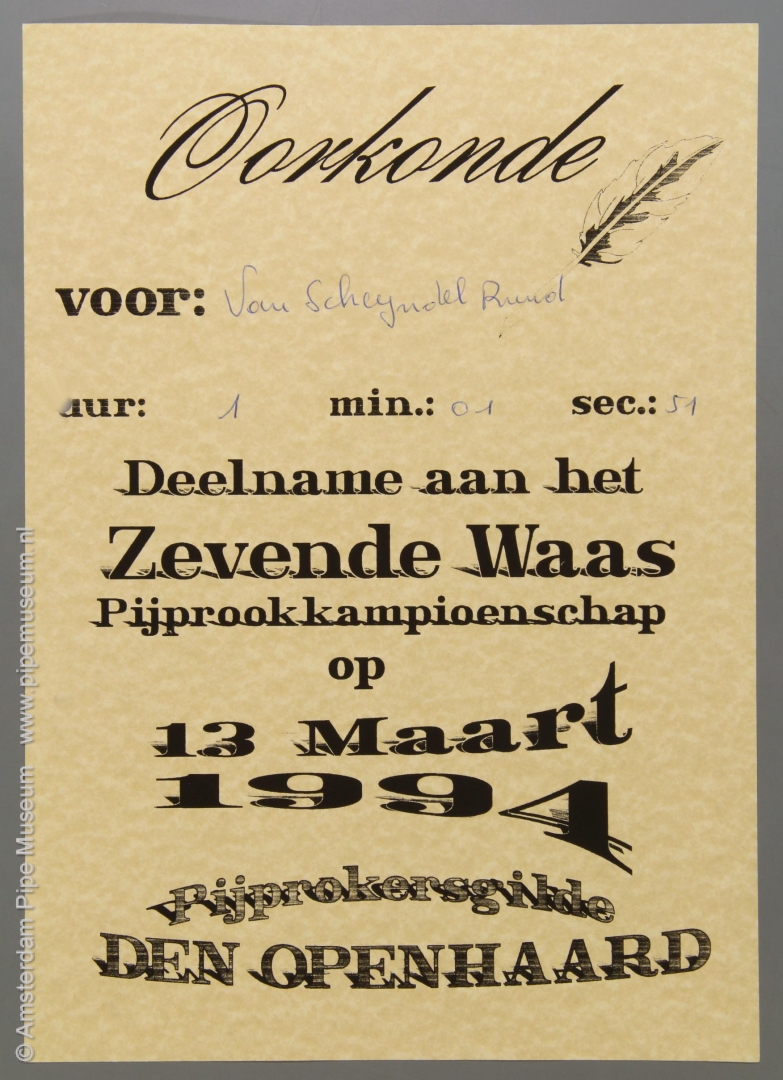 Oorkonde
voor: Van Scheyndel Ruud
uur: 1 min.: 01 sec.: 51
Deelname aan het
Zevende Waas
Pijprookkampioenschap
op
13 Maart
1994
Pijprokersgilde
DEN OPENHAARD
© Amsterdam Pipe Museum www.pipemuseum.nl